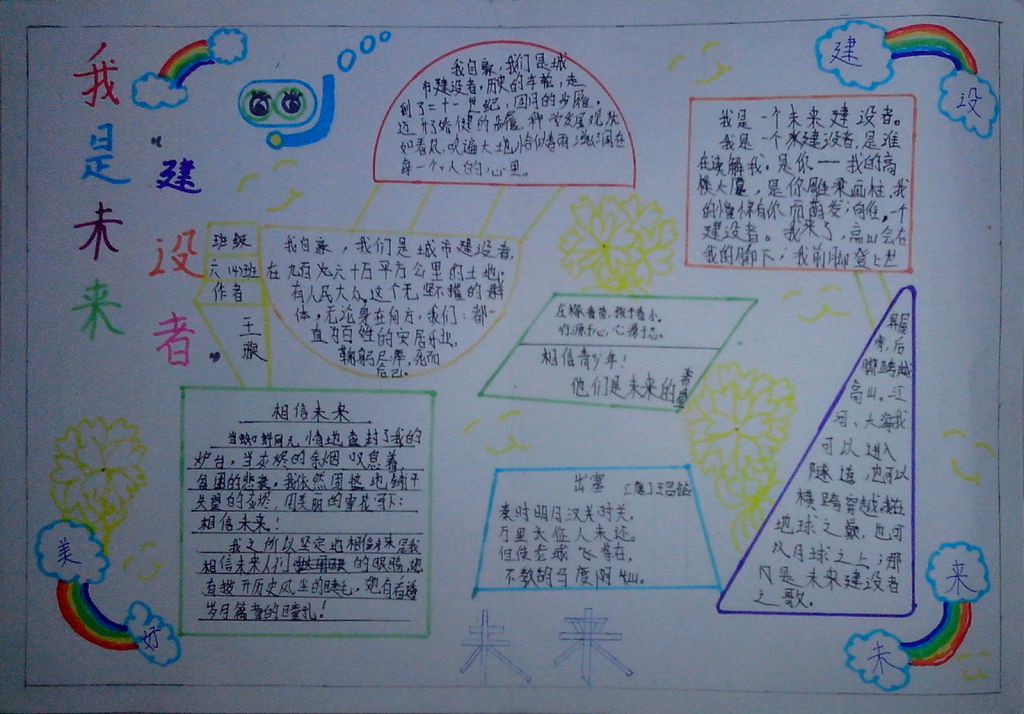 我是未来
“建设者”
建
设
美
好
未
来
班级
六(4)班
作者
王璇
我自豪，我们是城
市建设者，历史的车轮，走
到了二十一世纪，
迈开了矫健的
如春风吹遍大地，恰似春雨滋润在
每一个人的心里。
我自豪，我们是城市建设者，
在九百九六十万平方公里的土地，
有人民大众这个无坚不摧的群
体，无论身在何方，我们：都一
直为百姓的安居乐业，
鞠躬尽瘁，死而
后已。
我是一个未来建设者。
我是一个未来建设者，是谁
在读解我，是你——我的高
楼大厦，是你雕梁画柱，我
建设者。我来了，高山会在
我的脚下，我前脚登上世
界屋
脊，后
脚跨越
高山。江
河、大海我
可以进入
隧道，也可以
横跨穿越，
地球之巅，也可
以月球之上；那
便是未来建设者
之歌。
相信青少年！
他们是未来的希望
相信未来
当蜘蛛网无情地查封了我的
炉台，当灰烬的余烟叹息着
贫困的悲哀，我依然固执地铺平
失望的灰烬，用美丽的雪花写下：
相信未来！
我之所以坚定地相信未来是我
相信未来人们 的眼睛，她
有拨开历史风尘的睫毛，她有看透
岁月篇章的瞳孔！
出塞
[唐]王昌龄
秦时明月汉关时关，
万里长征人未还。
但使龙城飞将在，
不教胡马度阴山。
未来